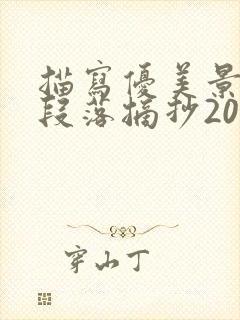 描寫優美景
段落摘抄20
穿山丁